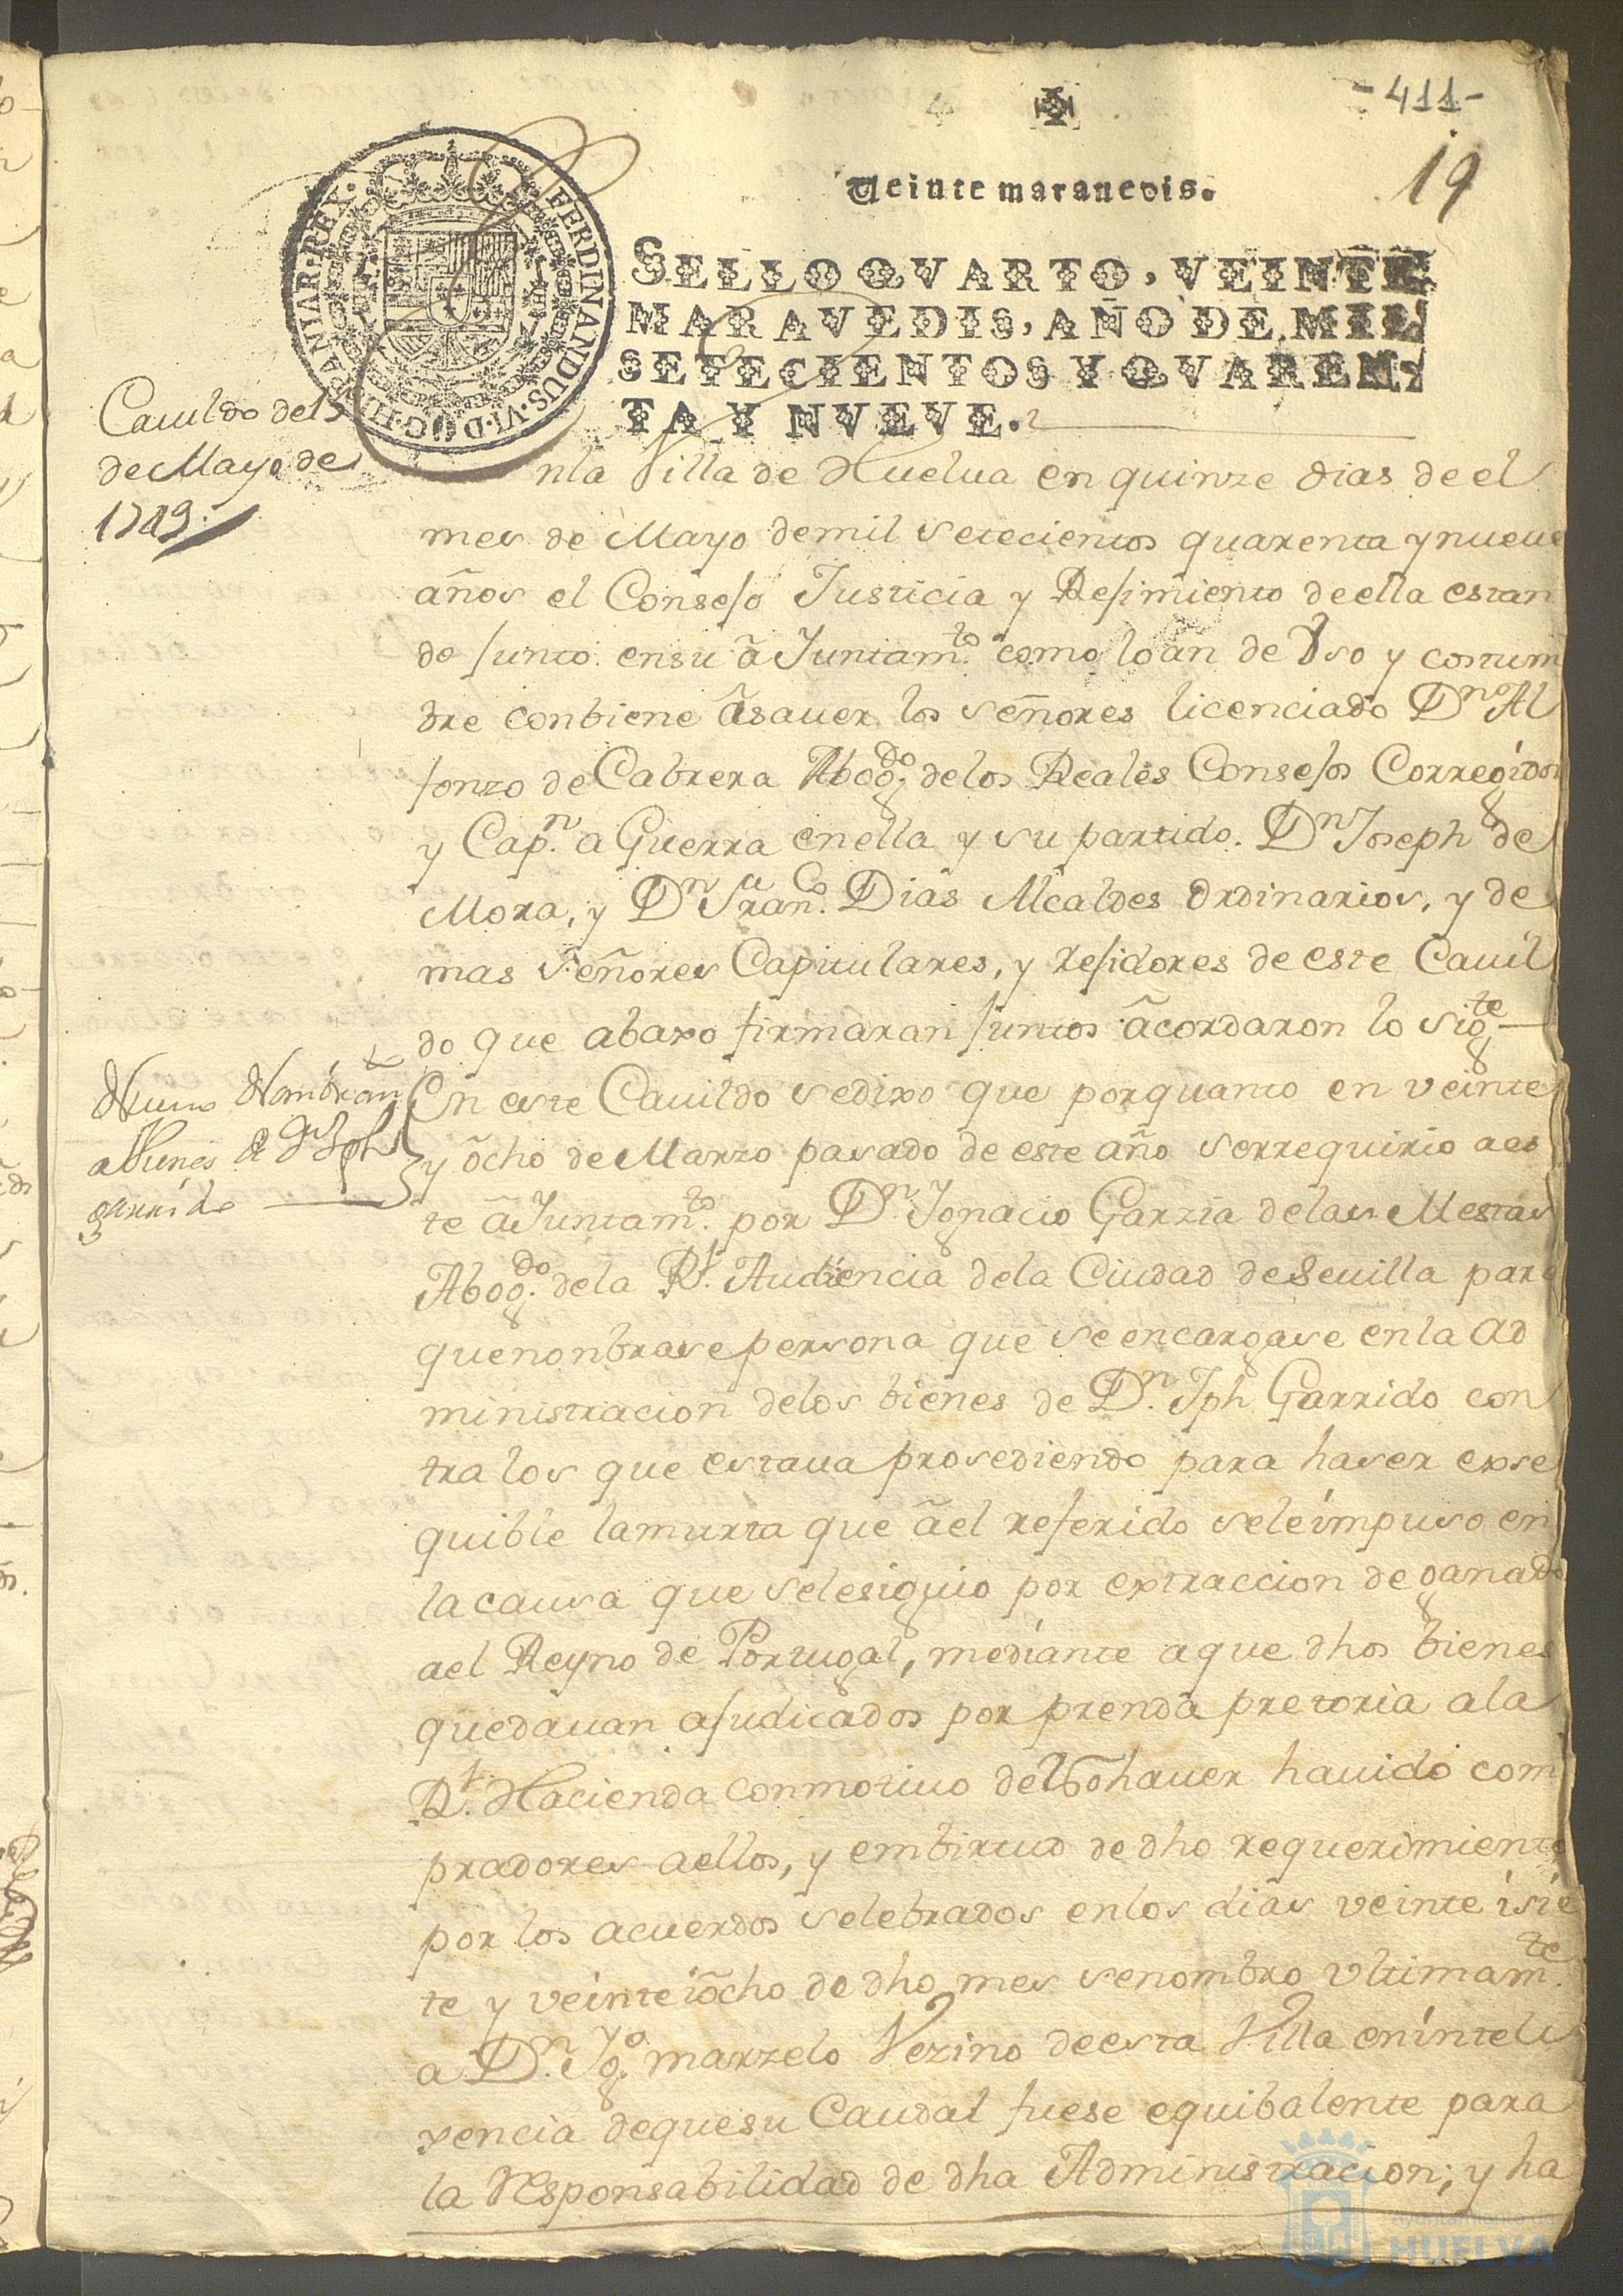 -411-
19
Veinte maravedis.
SELLO QVARTO, VEINTE
MARAVEDIS, AÑO DE MIL
SETECIENTOS Y QVAREN-
TA Y NVEVE.
FERDINANDUS·VI·D·G·HISPANIAR·REX·
Cauildo de 15
de Mayo de
1749.
En la Villa de Huelua en quinze dias de el
mes de Mayo de mil setecientos quarenta y nueue
años el Consejo Justicia y Rejimiento de ella estan
do junto en su a Juntam.to como lo an de Vso y costum
bre conbiene a sauer los señores licenciado Dn Al
fonzo de Cabrera Abog.do de los Reales Consejos Corregidor
y Cap.n a Guerra en ella y su partido. Dn Joseph de
Mora, y Dn Fran.co Dias Alcaldes Ordinarios, y de
mas Señores Capitulares, y Rejidores de este Cauil
do que abaxo firmaran juntos acordaron lo sig.te
Nueuo Nombram.to
a Vienes de Dn Jph
garrido
En este Cauildo se dixo que por quanto en veinte
y ocho de Marzo pasado de este año se rrequirio a es
te a Juntam.to por Dn Ygnacio Garzia de las Mestas
Abog.do de la R.l Audiencia de la Ciudad de Seuilla para
que nonbrase persona que se encargase en la ad
ministracion de los bienes de D.n Jph Garrido con
tra los que estaua prosediendo para haser exse
quible la murta que a el referido se le impuso en
la causa que se le siguio por extraccion de ganado
a el Reyno de Portugal, mediante a que dhos bienes
quedauan ajudicados por prenda pretoria a la
R.l Hacienda con motiuo de no hauer hauido com
pradores a ellos, y em birtud de dho requerimiento
por los acuerdos selebrados en los dias veinte i sie
te y veinte i ocho de dho mes se nombro vltimam.te
a D.n Yg.o marzelo Vezino de esta Villa en inteli
xencia de que su Caudal fuese equibalente para
la Responsabilidad de dha Administracion; y ha
Ayuntamiento de
HUELVA